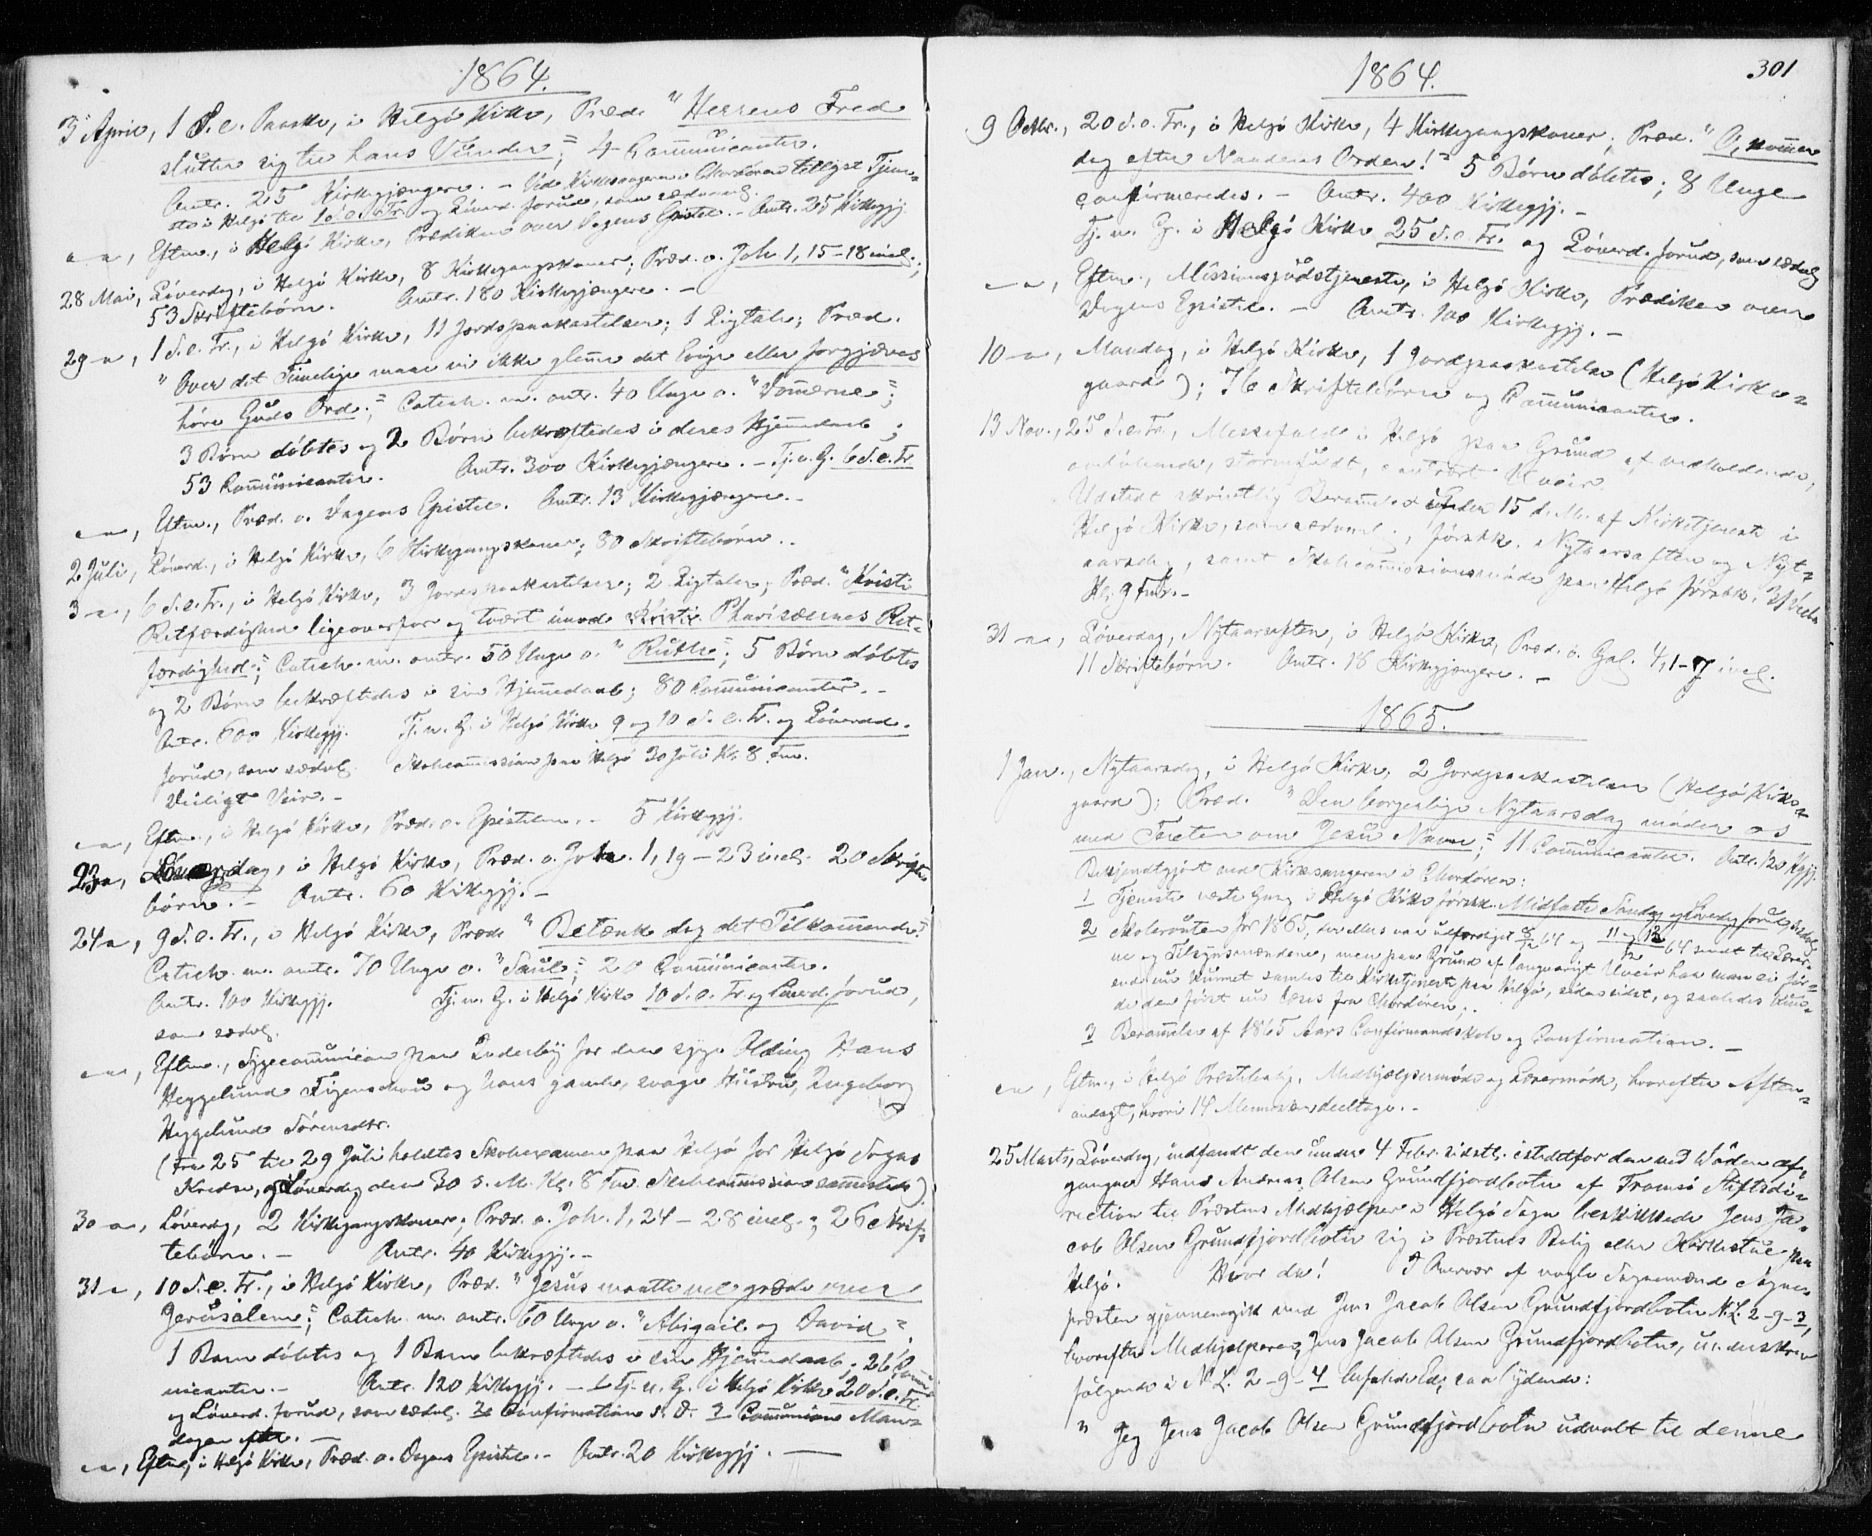 1864.
3 April, 1 S. e. Paaske, i Helgö Kirke, Præd. "Herrens Fred
slutter sig til hans Vunder"; 4 Communicanter.
Antr. 25 Kirkegjængere. – Ved Kirkesangeren i Chordören tillyst Tjene-
ste i Helgö til 1 S. e. Tr. og Löverd. forud, som sædvanl.
– , Eftm., i Helgö Kirke, Prædiken over Dagens Epistel. – Antr. 25 Kirkegjj.
28 Mai, Löverdag, i Helgö Kirke, 8 Kirkegangskoner; Præd. o. Joh. 1, 15–18 incl.;
53 Skriftebörn. Antr. 180 Kirkegjængere. –
29 – , 1 S. e. Tr., i Helgö Kirke, 11 Jordspaakastelser; 1 Ligtale; Præd.
"Over det Timelige maae vi ikke glemme det Evige eller forgjæves
höre Guds Ord"; Catech. m. antr. 40 Unge o. "Dommerne";
3 Börn döbtes og 2 Börn bekræftedes i deres Hjemmedaab;
53 Communicanter. Antr. 300 Kirkegjængere. – Tj. n. G. 6 S. e. Tr.
– , Eftm., Præd. o. Dagens Epistel. Antr. 13 Kirkegjængere. –
2 Juli, Löverd., i Helgö Kirke, 6 Kirkegangskoner; 80 Skriftebörn. –
3 – , 6 S. e. Tr., i Helgö Kirke, 3 Jordspaakastelser; 2 Ligtaler; Præd. "Kristi
Retfærdighed ligeoverfor og tvært imod Pharisæernes Ret-
færdighed"; Catech. m. antr. 50 Unge o. "Ruth"; 5 Börn döbtes
og 2 Börn bekræftedes i sin Hjemmedaab; 80 Communicanter. –
Antr. 600 Kirkegjj. Tj. n. G. i Helgö Kirke 9 og 10 S. e. Tr. og Löverd.
forud, som sædvl. Skolecommission paa Helgö 30 Juli Kl. 8 Fm.
Deiligt Veir. –
– , Eftm., i Helgö Kirke, Præd. o. Epistelen. – 5 Kirkegjj.
23 – , Löverdag, i Helgö Kirke, Præd. o. Joh. 1, 19–23 incl. 20 Skrifte-
börn. – Antr. 60 Kirkegjj. –
24 – , 9 S. e. Tr., i Helgö Kirke, Præd. "Betænk dog det Tilkommende!"
Catech. m. antr. 70 Unge o. "Saul"; 20 Communicanter.
Antr. 100 Kirkegjj. Tj. n. G. i Helgö Kirke 10 S. e. Tr. og Löverd. forud,
som sædvl.
– , Eftm., Sygecommunion paa Enderby for den syge Olding Hans
Heggelund Figenschou og hans gamle, svage Hustru, Ingeborg
Heggelund Sörensdtr.
(Fra 25 til 29 Juli holdtes Skoleexamen paa Helgö for Helgö Sogns
Kredse, og Löverdag den 30 s. M. Kl. 8 Fm. Skolecommission sammesteds).
30 – , Löverdag, 2 Kirkegangskoner; Præd. o. Joh. 1, 24–28 incl.; 26 Skrif-
tebörn. – Antr. 40 Kirkegjj. –
31 – , 10 S. e. Tr., i Helgö Kirke, Præd. "Jesus maatte vel græde over
Jerusalem"; Catech. m. antr. 60 Unge o. "Abigail og David";
1 Barn döbtes og 1 Barn bekræftedes i sin Hjemmedaab; 26 Commu-
nicanter. – Antr. 120 Kirkegjj. – 1 Tj. n. G. i Helgö Kirke 20 S. e. Tr.
og Löverd. forud, som sædvl. 2 Confirmation s. D. 3 Communion Man-
dagen efter. –
– , Eftm., i Helgö Kirke, Præd. o. Dagens Epistel. – Antr. 20 Kirkegjj. –
1864. 301
9 Octbr., 20 S. e. Tr., i Helgö Kirke, 4 Kirkegangskoner; Præd. "O, kommer
dog efter Naadens Orden!" 5 Börn döbtes; 8 Unge
confirmeredes. – Antr. 400 Kirkegjj. –
Tj. n. G. i Helgö Kirke 25 S. e. Tr. og Löverd. forud, som sædvl.
– , Eftm., Missionsgudstjeneste, i Helgö Kirke, Prædiken over
Dagens Epistel. – Antr. 100 Kirkegjj. –
10 – , Mandag, i Helgö Kirke, 1 Jordspaakastelse (Helgö Kirke-
gaard); 76 Skriftebörn og Communicanter.
13 Nov., 25 S. e. Tr., Messefald i Helgö paa Grund af vedholdende,
stormfuldt, Uveir.
Udstedt skriftlig Berammelse under 15 d. M. af Kirketjeneste i
Helgö Kirke, som sædvanl., förstk. Nytaarsaften og Nyt-
aarsdag, samt Skolecommissionsmöde paa Helgö förstk. 31 Decbr.
Kl. 9 Fm. –
31 – , Löverdag, Nytaarsaften, i Helgö Kirke, Præd. o. Gal. 4, 1–7 incl.
11 Skriftebörn. Antr. 18 Kirkegjængere. –
1865.
1 Jan., Nytaarsdag, i Helgö Kirke, 2 Jordspaakastelser (Helgö Kirke-
gaard); Præd. "Den borgerlige Nytaarsdag möder os
med Texten om Jesu Navn"; 11 Communicanter. Antr. 120 Kgjj.
Bekjendtgjort ved Kirkesangeren i Chordören:
1 Tjeneste næste Gang i Helgö Kirke förstk. Midfaste Söndag og Löverdag forud, sædvl.
2 Skolerouten for 1865, der ellers var udfærdiget 8/ 64 og 11 og 12/12 64 sendt til Lærer-
ne og Tilsynsmændene, men paa Grund af langvarigt Uveir har man ei för-
end nu kunnet samles til Kirketjeneste paa Helgö, siden sidst, og saaledes kun-
de den först nu læses fra Chordören. –
3 Berammelse af 1865 Aars Confirmandskole og Confirmation. –
– , Eftm., i Helgö Præstebolig, Medhjælpermöde og Lærermöde, hvorefter Aften-
andagt, hvori 14 Mennesker deeltoge. –
25 Marts, Löverdag, indfandt den under 4 Febr. sidstl. istedetfor den ved Döden af-
gangne Hans Andreas Olsen Grundfjordbotn af Tromsö Stiftsdi-
rection til Præstens Medhjælper i Helgö Sogn beskikkede Jens Ja-
cob Olsen Grundfjordbotn sig i Præstens Bolig eller Kirkestue paa
Helgö. Hvor da! I Overvær af nogle Sognemænd Sogne-
præsten gjennemgik med Jens Jacob Olsen Grundfjordbotn N. L. 2–9–3,
hvorefter Medhjælperen, Jens Jacob Olsen Grundfjordbotn, underskrev
fölgende i N. L. 2–9–4 befalede Ed, saa lydende:
"Jeg Jens Jacob Olsen Grundfjordbotn udvalt til denne